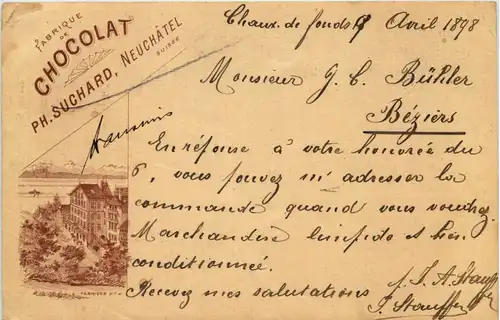 FABRIQUE
DE
CHOCOLAT
PH. SUCHARD, NEUCHÂTEL
SUISSE
Chaux-de-fonds 9 Avril 1898
Monsieur J. C. Bühler
Béziers
En réponse à votre honorée du
6, vous pouvez m'adresser la
commande quand vous voudrez
Marchandise limpide et bien
conditionnée.
Recevez mes salutations
J. Stauffer